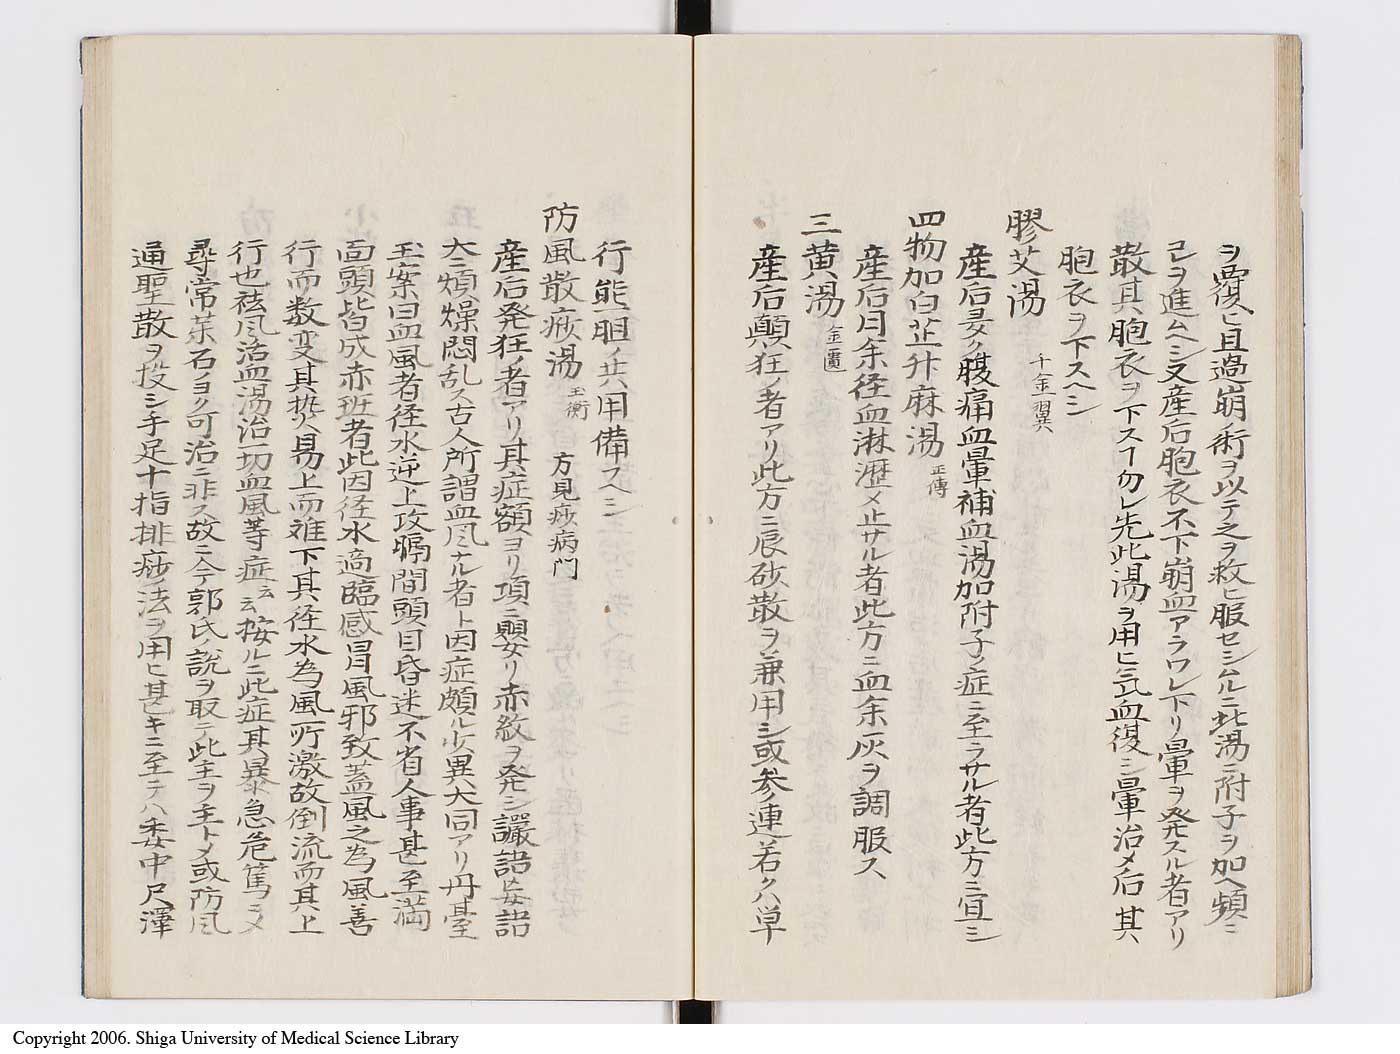 ヲ覆ヒ且過崩ノ術ヲ以テ之ヲ救ヒ服セシムルニ此湯ニ附子ヲ加ヘ頻ニ
己ヲ進ムヘシ又産后胞衣不下崩血アラワレ下リ暈ヲ発スル者アリ
散其胞衣ヲ下スヿ勿レ先此湯ヲ用ヒ元血復シ暈治メ后其
胞衣ヲ下スヘシ
膠艾湯 千金翼
産后妄ク腹痛血暈補血湯加附子ノ症ニ至ラサル者此方ニ宜シ
四物加白芷升麻湯 正傳
産后月余径血淋瀝メ止サル者此方ニ血余灰ヲ調服ス
三黄湯 金匱
産后顛狂ノ者アリ此方ニ辰砂散ヲ兼用シ或参連若クハ単
行熊胆ノ共用備フヘシ
防風散痧湯 玉衡 方見痧病門
産后発狂ノ者アリ其症額ヨリ項ニ顋リ赤紋ヲ発シ讝語妄語
大ニ煩燥悶乱ス古人所謂血風ナル者ト因症頗ル少異大同アリ丹臺
玉案曰血風者径水逆上攻膈間頭目昏迷不省人事甚至満
面頭皆成赤班者此因径水適臨感冒風邪致蓋風之為風善
行而数変其熱火易上而难下其径水為風所激故倒流而其上
行也祛風活血湯治一切血風等症云云按ルニ此症其暴急危篤ニメ
尋常茶石ヨク可治ニ非ス故ニ今郭氏説ヲ取テ此主ヲ主トメ或防風
通聖散ヲ投シ手足十指排痧ノ法ヲ用ヒ甚キニ至テハ委中尺澤
Copyright 2006. Shiga University of Medical Science Library